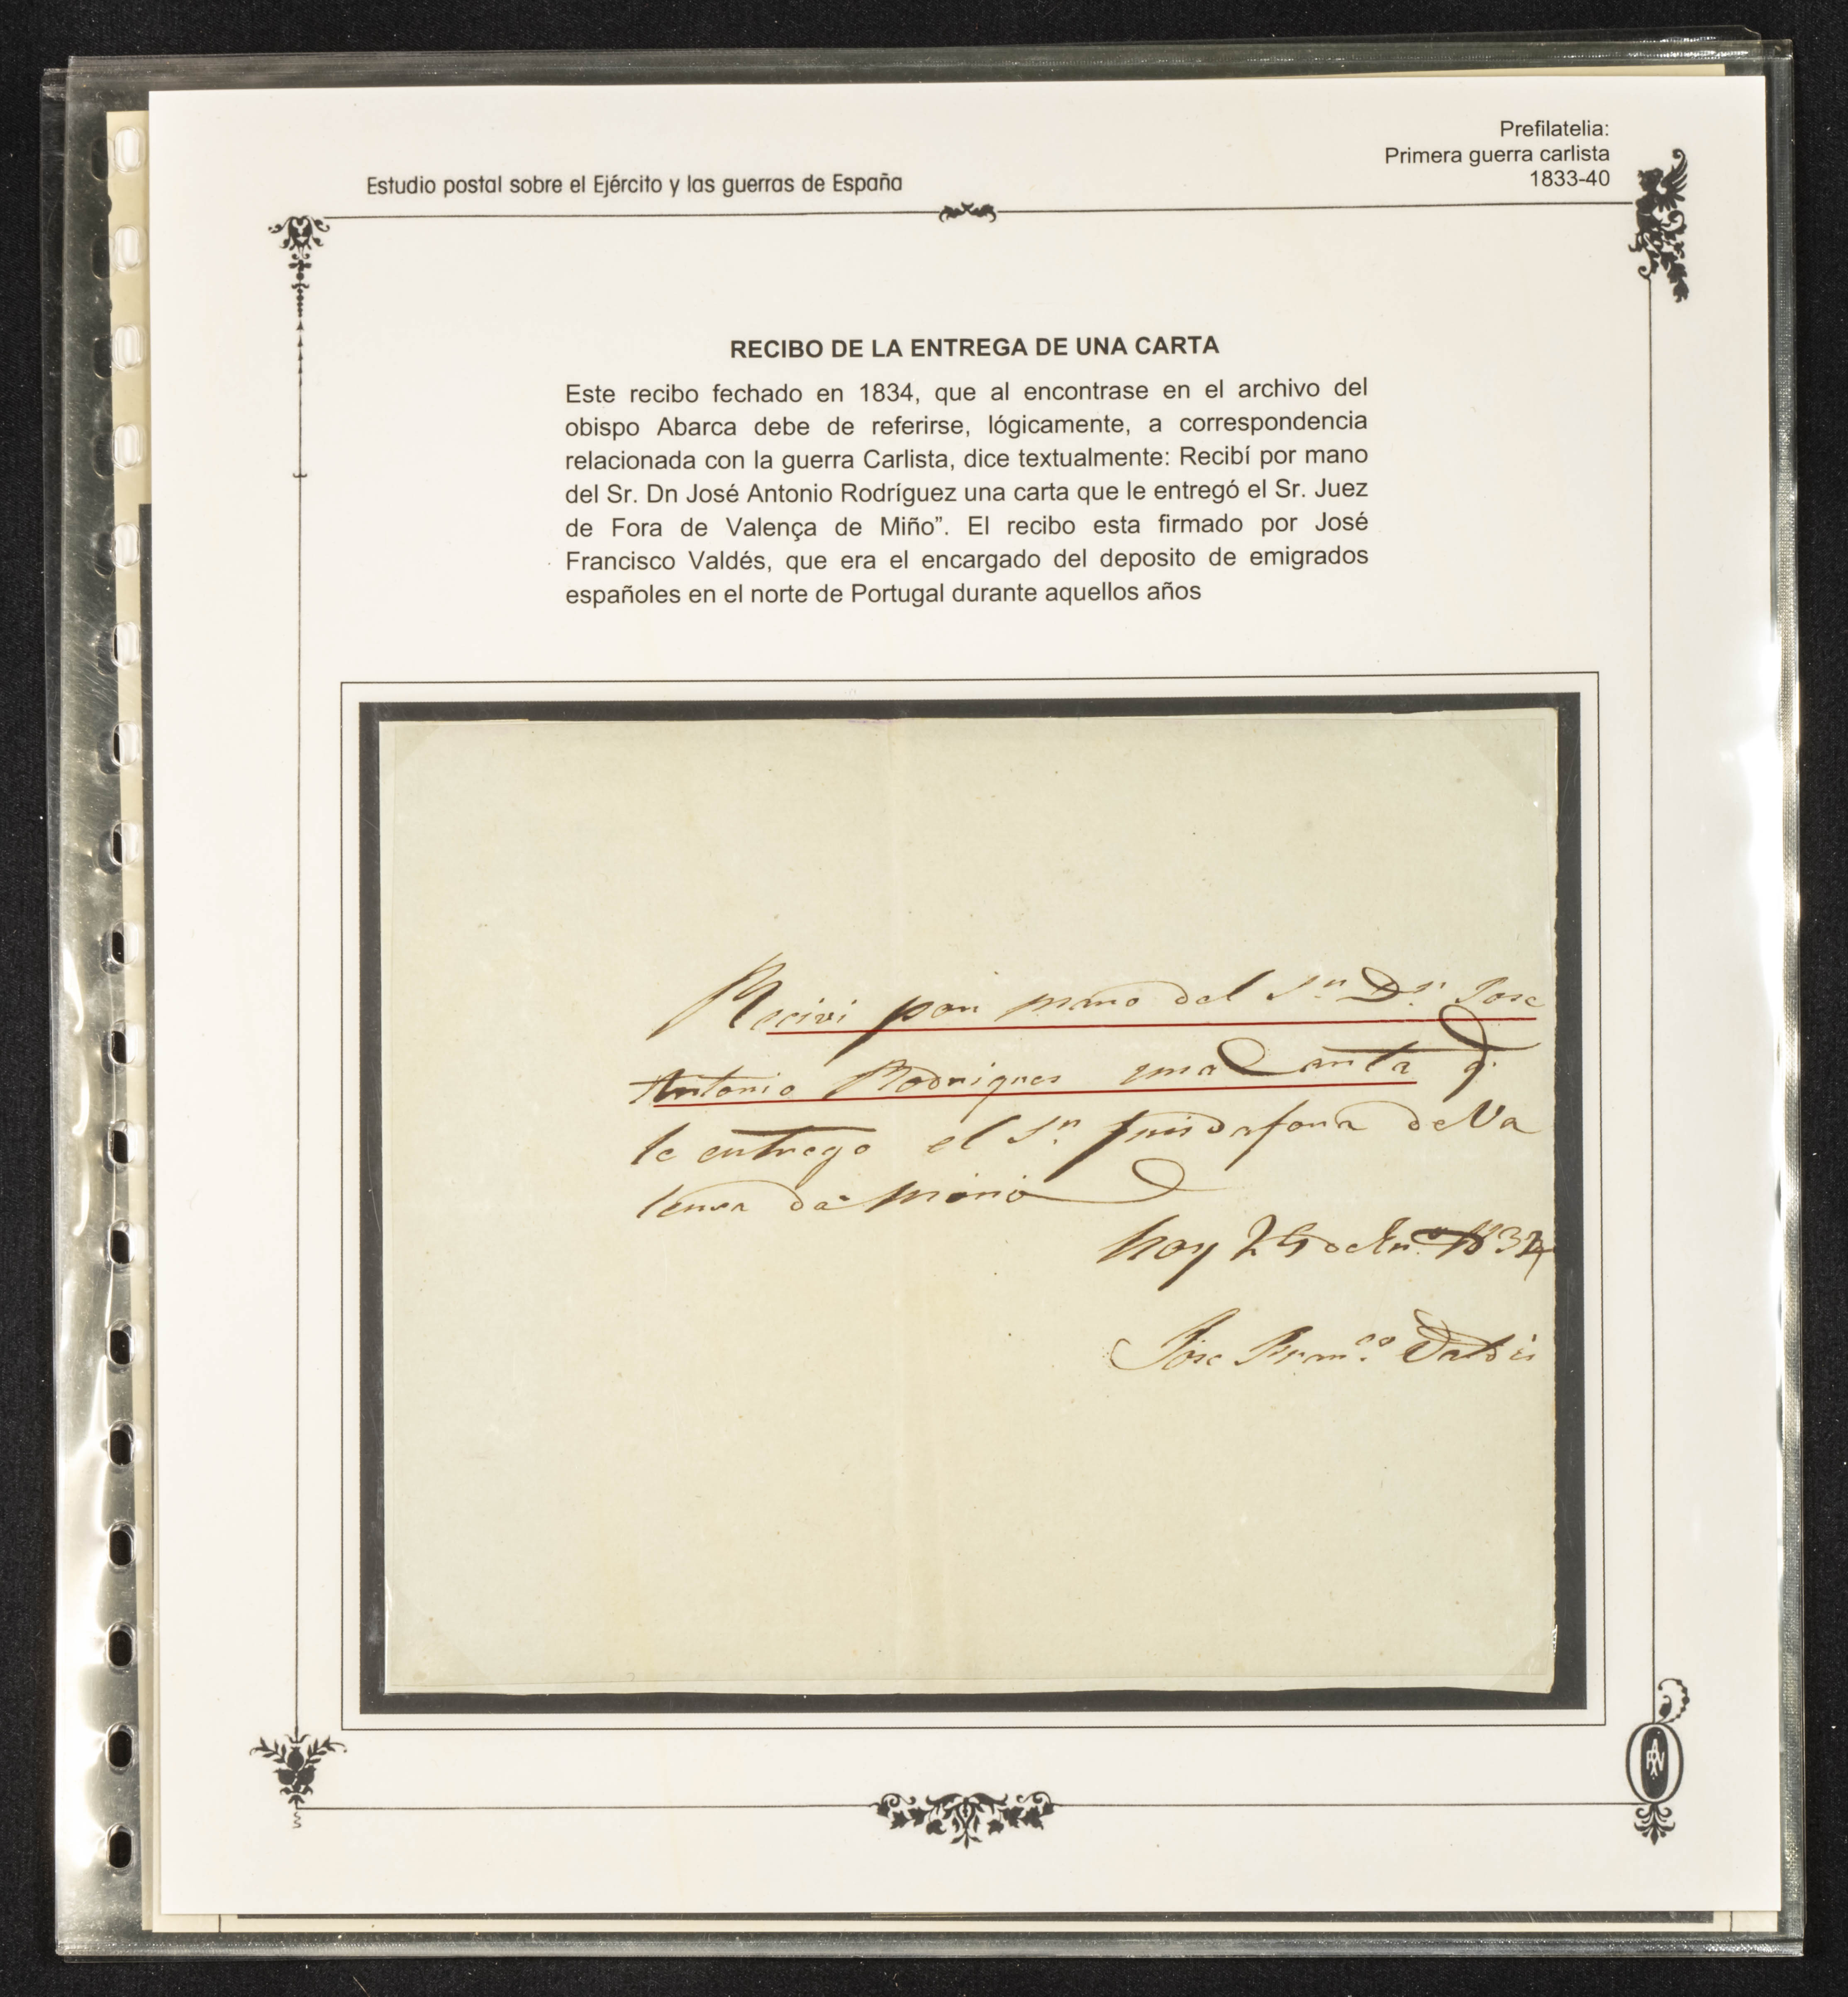 Prefilatelia:
Primera guerra carlista
1833-40
Estudio postal sobre el Ejército y las guerras de España
RECIBO DE LA ENTREGA DE UNA CARTA
Este recibo fechado en 1834, que al encontrase en el archivo del
obispo Abarca debe de referirse, lógicamente, a correspondencia
relacionada con la guerra Carlista, dice textualmente: Recibí por mano
del Sr. Dn José Antonio Rodríguez una carta que le entregó el Sr. Juez
de Fora de Valença de Miño”. El recibo esta firmado por José
Francisco Valdés, que era el encargado del deposito de emigrados
españoles en el norte de Portugal durante aquellos años
Recivi por mano del Sr. Dn. Jose
Antonio Rodrigues una Carta q.
le entrego el Sr. Juis dafora de Va
lensa da Minio
hoy 25 de En.o 1834
Jose Fran.co Valdés